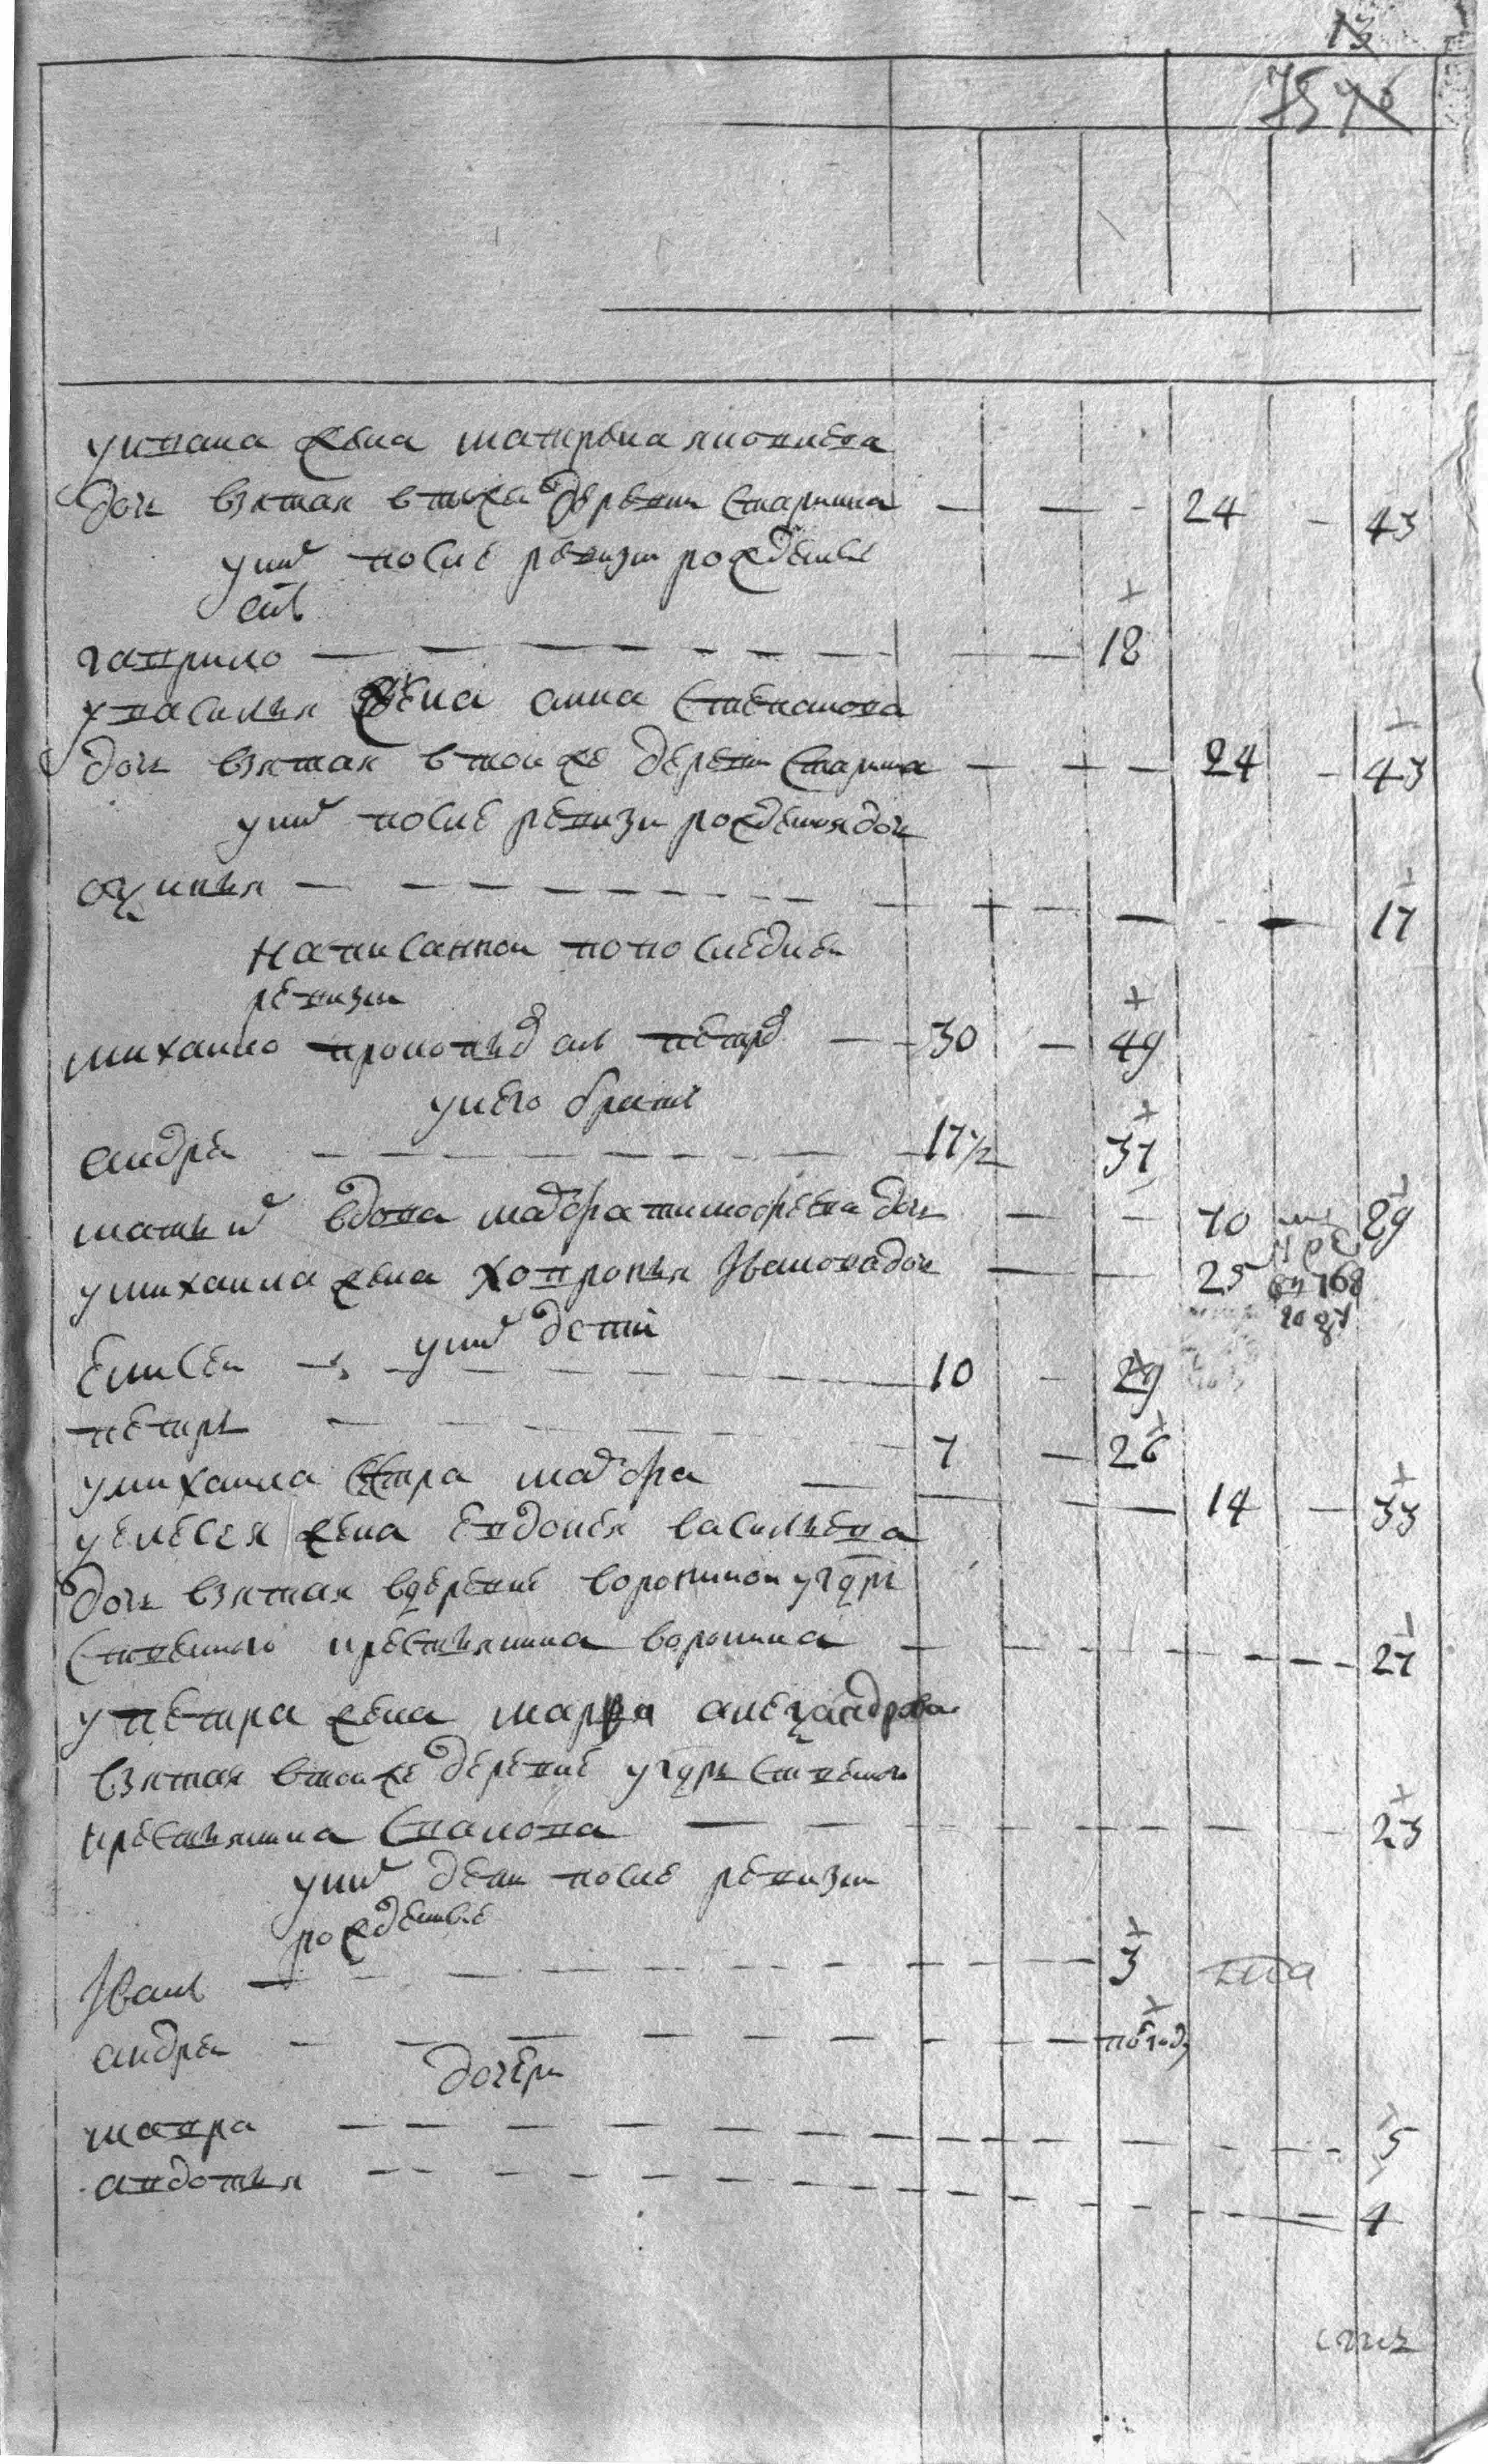 13
75 76
у ивана жена матрена яковлева
дочь взятая в той же деревни старинна — — - 24 - 43
у них после ревизи рожденные
снъ
гаврило — 18
у василья жена анна степанова
дочь взятая в той же деревни старинна — 24 - 43
у них после ревизи рожденная дочь
аксинья — 17
написанной по последней
ревизи
михайло прокопьев снъ петров — 30 — 49
у него братъ
андрей — 17½ 37
мать их вдова мавра тимофеева дочь — 70 89
у михайла жена хопронья Iванова дочь — 25
у них дети
елисей — 10 - 29
петръ — 7 — 26
у михайла сестра мавра — 14 — 33
у елесея жена евдокея васильева
дочь взятая в деревне ворониной у госудрь
ственного крестьянина воронина — 27
у петра жена марья александрова
взятая в той же деревне у госудрь ственной
крестьянина — 23
у них дети после ревизи
рожденные
Iванъ — 3
андрей — полгода
дочери
мавра — 5
авдотья — 1